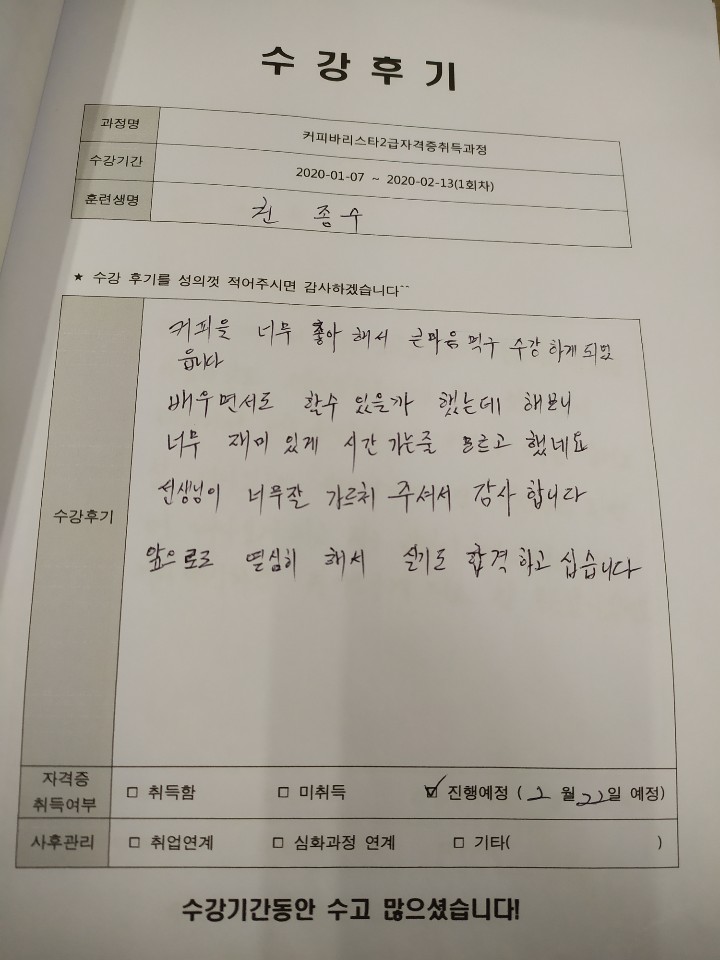 수강후기
과정명 커피바리스타2급자격증취득과정
수강기간 2020-01-07 ~ 2020-02-13(1회차)
훈련생명 권 종수
★ 수강 후기를 성의껏 적어주시면 감사하겠습니다^^
수강후기
커피을 너무 좋아 해서 큰마음 먹구 수강 하게 되었
읍니다
배우면서도 할수 있을까 했는데 해보니
너무 재미 있게 시간 가는줄 모르고 했네요
선생님이 너무잘 가르쳐 주셔서 감사 합니다
앞으로도 열심히 해서 실기도 합격 하고 십습니다
자격증
취득여부 □ 취득함 □ 미취득 ☑ 진행예정 ( 2 월 22일 예정)
사후관리 □ 취업연계 □ 심화과정 연계 □ 기타( )
수강기간동안 수고 많으셨습니다!